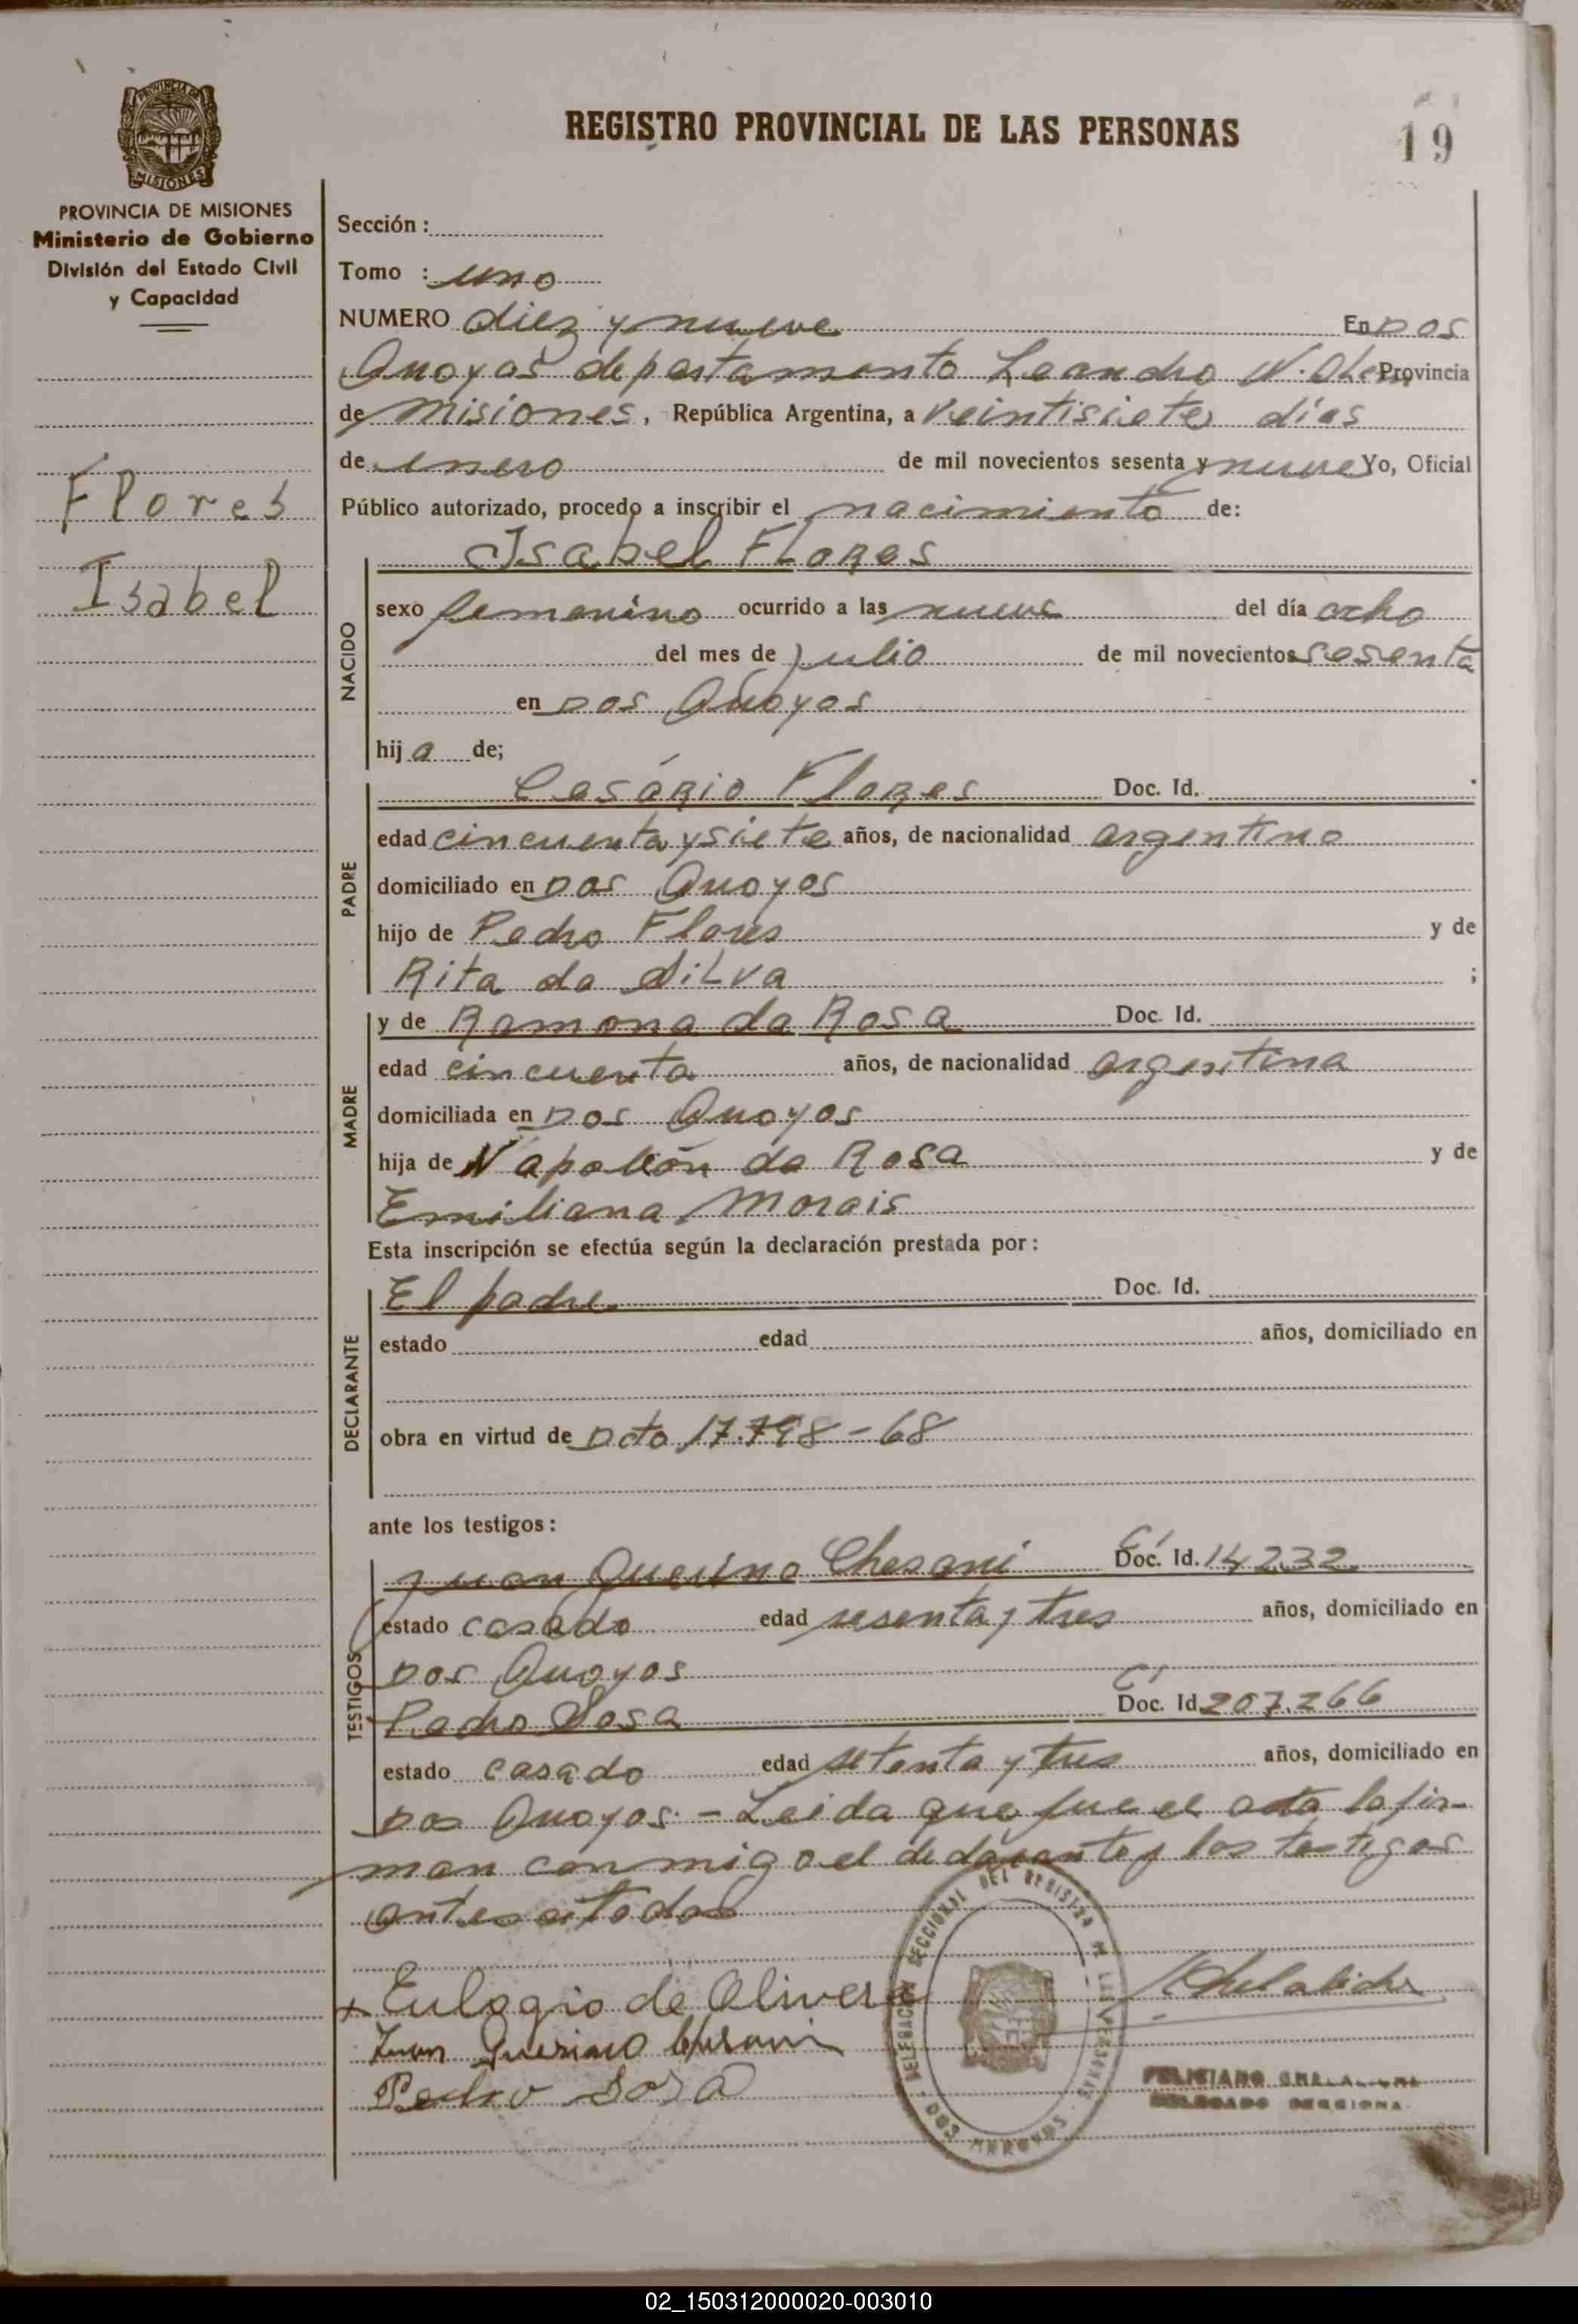 REGISTRO PROVINCIAL DE LAS PERSONAS
19
PROVINCIA DE MISIONES
MISIONES
PROVINCIA DE MISIONES
Ministerio de Gobierno
División del Estado Civil
y Capacidad
Flores
Isabel
Sección:
Tomo : uno
NUMERO diez y nueve En Dos
Arroyos departamento Leandro N. Alem Provincia
de Misiones, República Argentina, a veintisiete días
de enero de mil novecientos sesenta y nueve Yo, Oficial
Público autorizado, procedo a inscribir el nacimiento de:
Isabel Flores
NACIDO
sexo femenino ocurrido a las nueve del día ocho
del mes de julio de mil novecientos sesenta
en Dos Arroyos
hija de;
PADRE
Cesário Flores Doc. Id.
edad cincuenta y siete años, de nacionalidad argentino
domiciliado en Dos Arroyos
hijo de Pedro Flores y de
Rita da Silva ;
MADRE
y de Ramona da Rosa Doc. Id.
edad cincuenta años, de nacionalidad argentina
domiciliada en Dos Arroyos
hija de Napoleón da Rosa y de
Emiliana Morais
Esta inscripción se efectúa según la declaración prestada por:
DECLARANTE
El padre Doc. Id.
estado edad años, domiciliado en
obra en virtud de Dcto 17.798-68
ante los testigos:
TESTIGOS
Juan Querino Chesani C.I. Doc. Id. 14232
estado casado edad sesenta y tres años, domiciliado en
Dos Arroyos
Pedro Sosa C.I. Doc. Id 207.266
estado casado edad setenta y tres años, domiciliado en
Dos Arroyos. - Leida que fue el acta la fir-
man conmigo el declarante y los testigos
antes citados
x Eulogio de Olivera
Juan Querino Chesani
Pedro Sosa
DELEGACION SECCIONAL DEL REGISTRO DE LAS PERSONAS - DOS ARROYOS -
FELICIANO
DELEGADO SECCIONAL
02_150312000020-003010